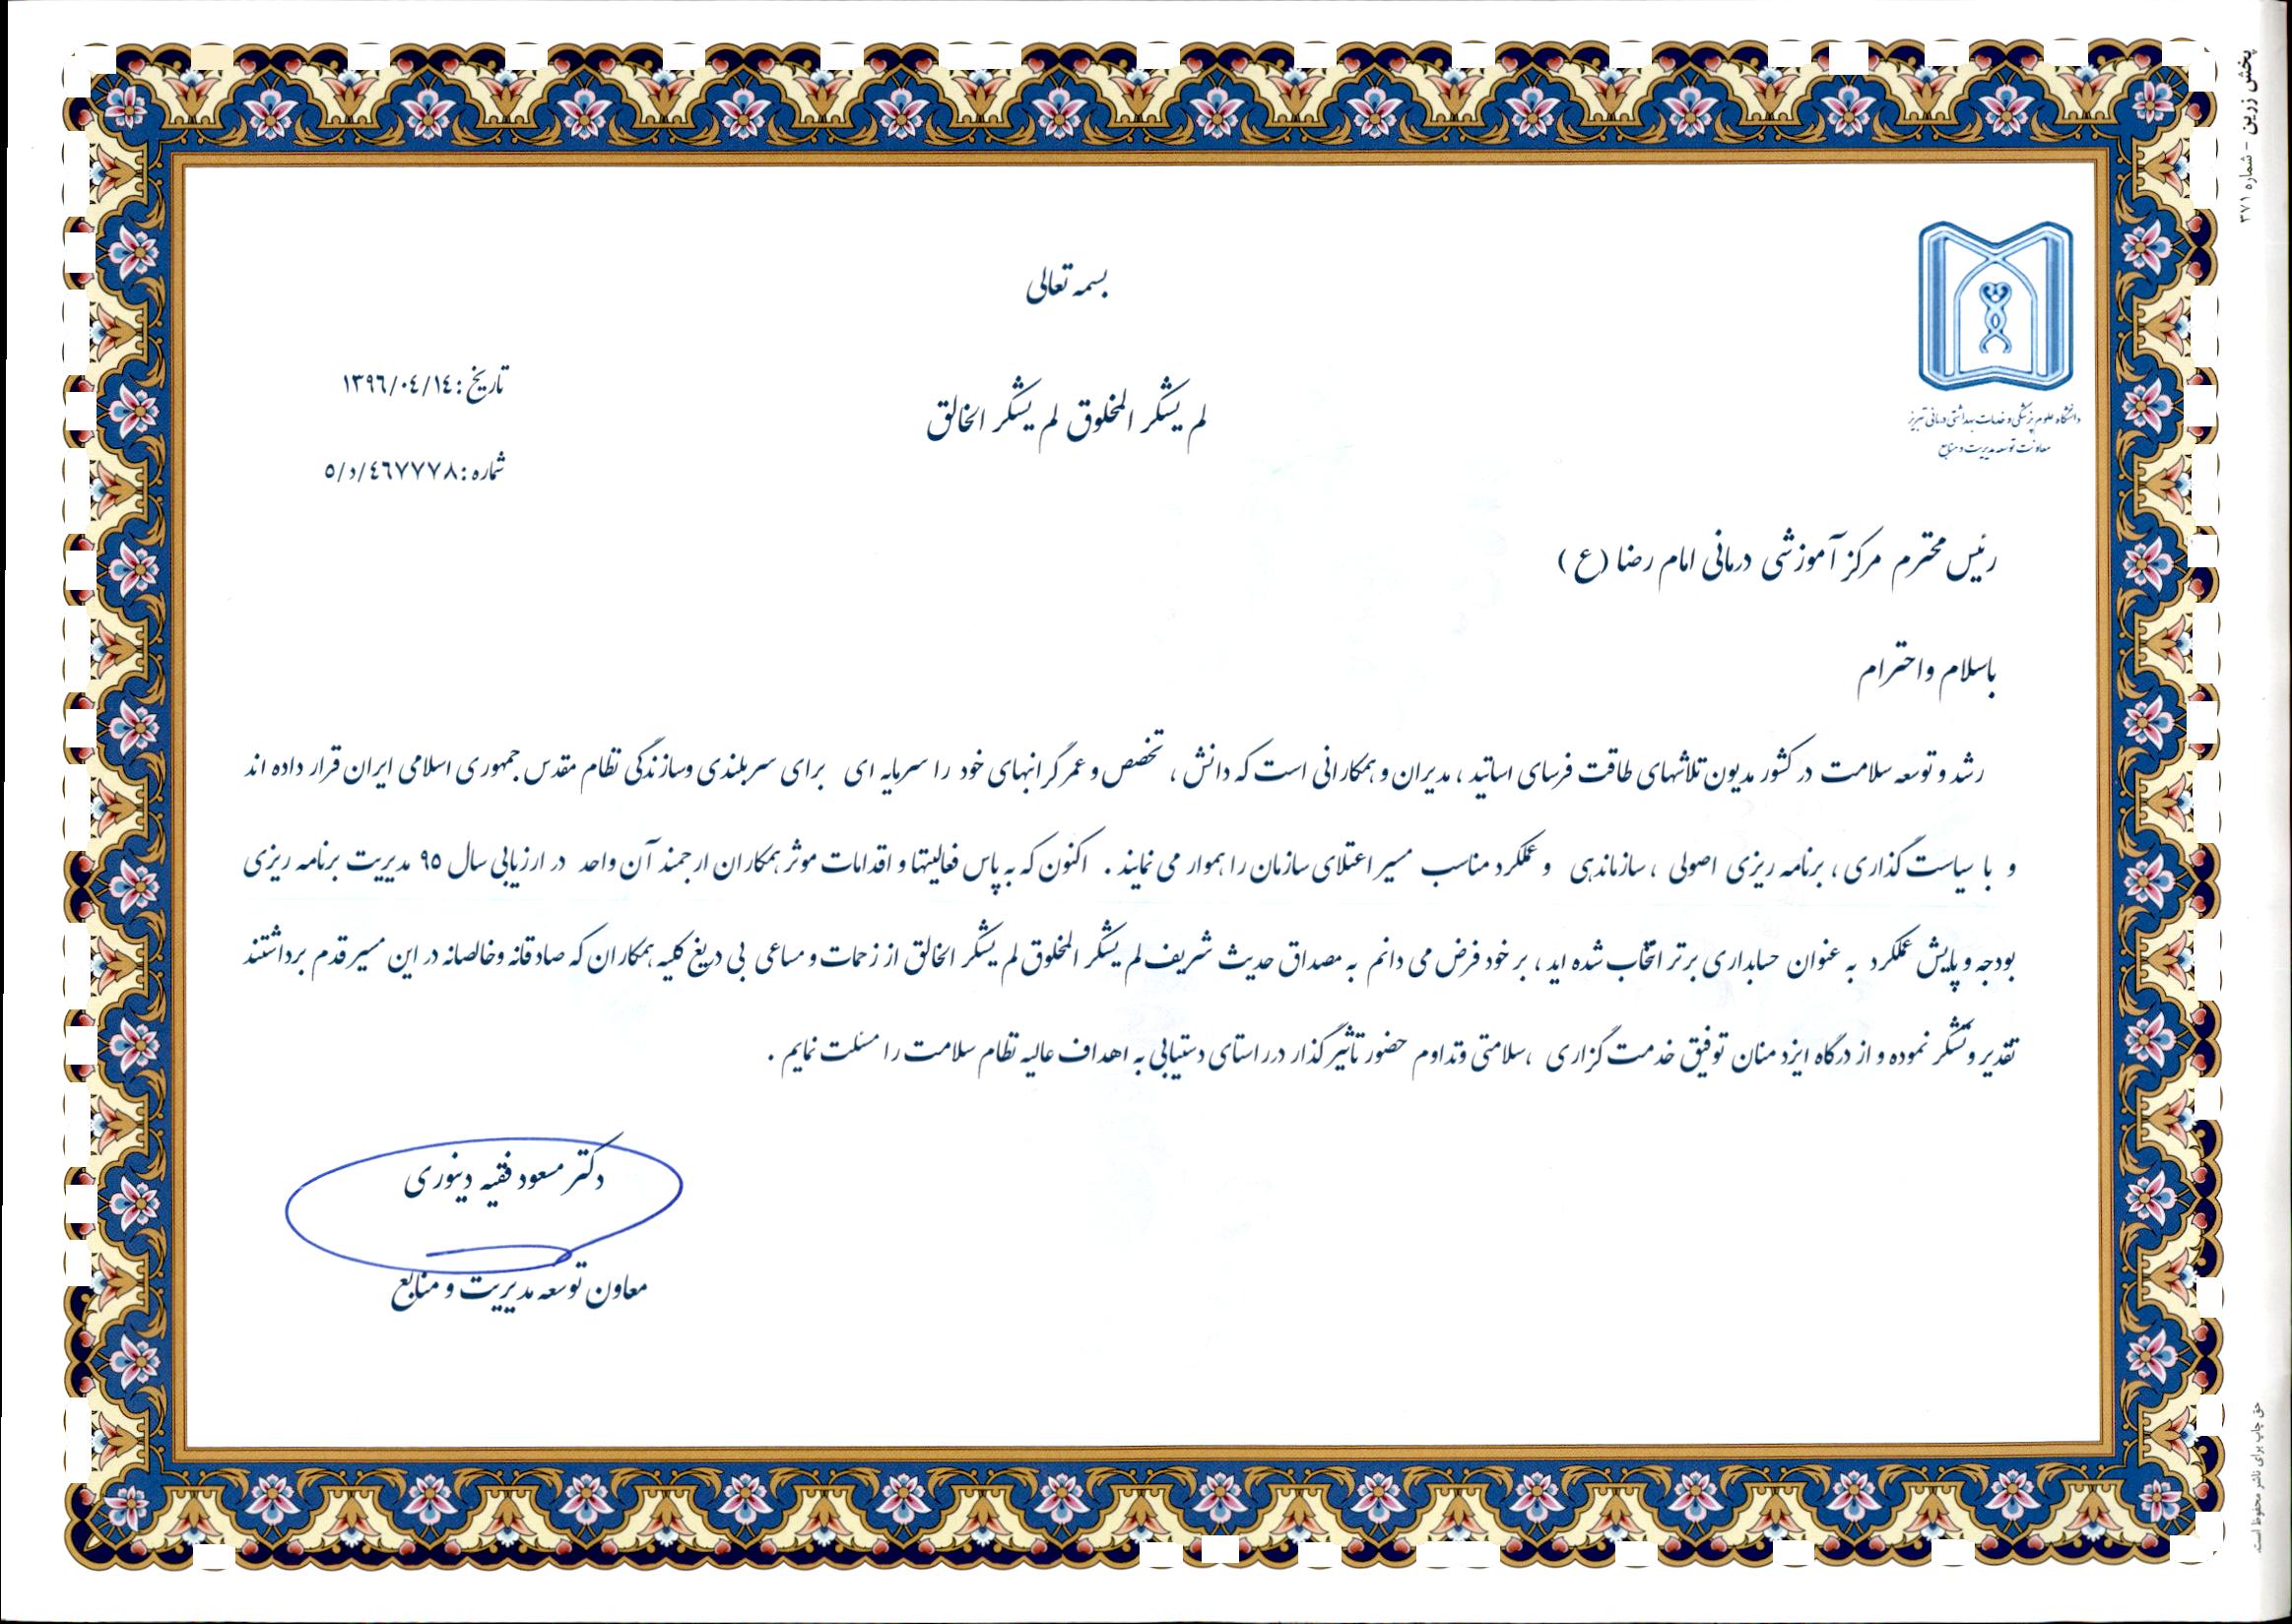 بسمه تعالی
لم یشکر المخلوق لم یشکر الخالق
تاریخ : ۱۳۹٦/۰٤/۱٤
شماره : ٤٦۷۷۷۸/د/٥
دانشگاه علوم پزشکی و خدمات بهداشتی درمانی تبریز
معاونت توسعه مدیریت و منابع
رئیس محترم مرکز آموزشی درمانی امام رضا (ع)
باسلام واحترام
رشد و توسعه سلامت در کشور مدیون تلاشهای طاقت فرسای اساتید ، مدیران و همکارانی است که دانش ، تخصص و عمر گرانبهای خود را سرمایه ای برای سربلندی وسازندگی نظام مقدس جمهوری اسلامی ایران قرار داده اند
و با سیاست گذاری ، برنامه ریزی اصولی ، سازماندهی و عملکرد مناسب مسیر اعتلای سازمان را هموار می نمایند . اکنون که به پاس فعالیتها و اقدامات موثر همکاران ارجمند آن واحد در ارزیابی سال ۹٥ مدیریت برنامه ریزی
بودجه و پایش عملکرد به عنوان حسابداری برتر انتخاب شده اید ، بر خود فرض می دانم به مصداق حدیث شریف لم یشکر المخلوق لم یشکر الخالق از زحمات و مساعی بی دریغ کلیه همکاران که صادقانه وخالصانه در این مسیر قدم برداشتند
تقدیر وتشکر نموده و از درگاه ایزد منان توفیق خدمت گزاری ،سلامتی وتداوم حضور تأثیر گذار درراستای دستیابی به اهداف عالیه نظام سلامت را مسئلت نمایم .
دکتر مسعود فقیه دینوری
معاون توسعه مدیریت و منابع
پخش زرین - شماره ۳۷۱
حق چاپ برای ناشر محفوظ است.